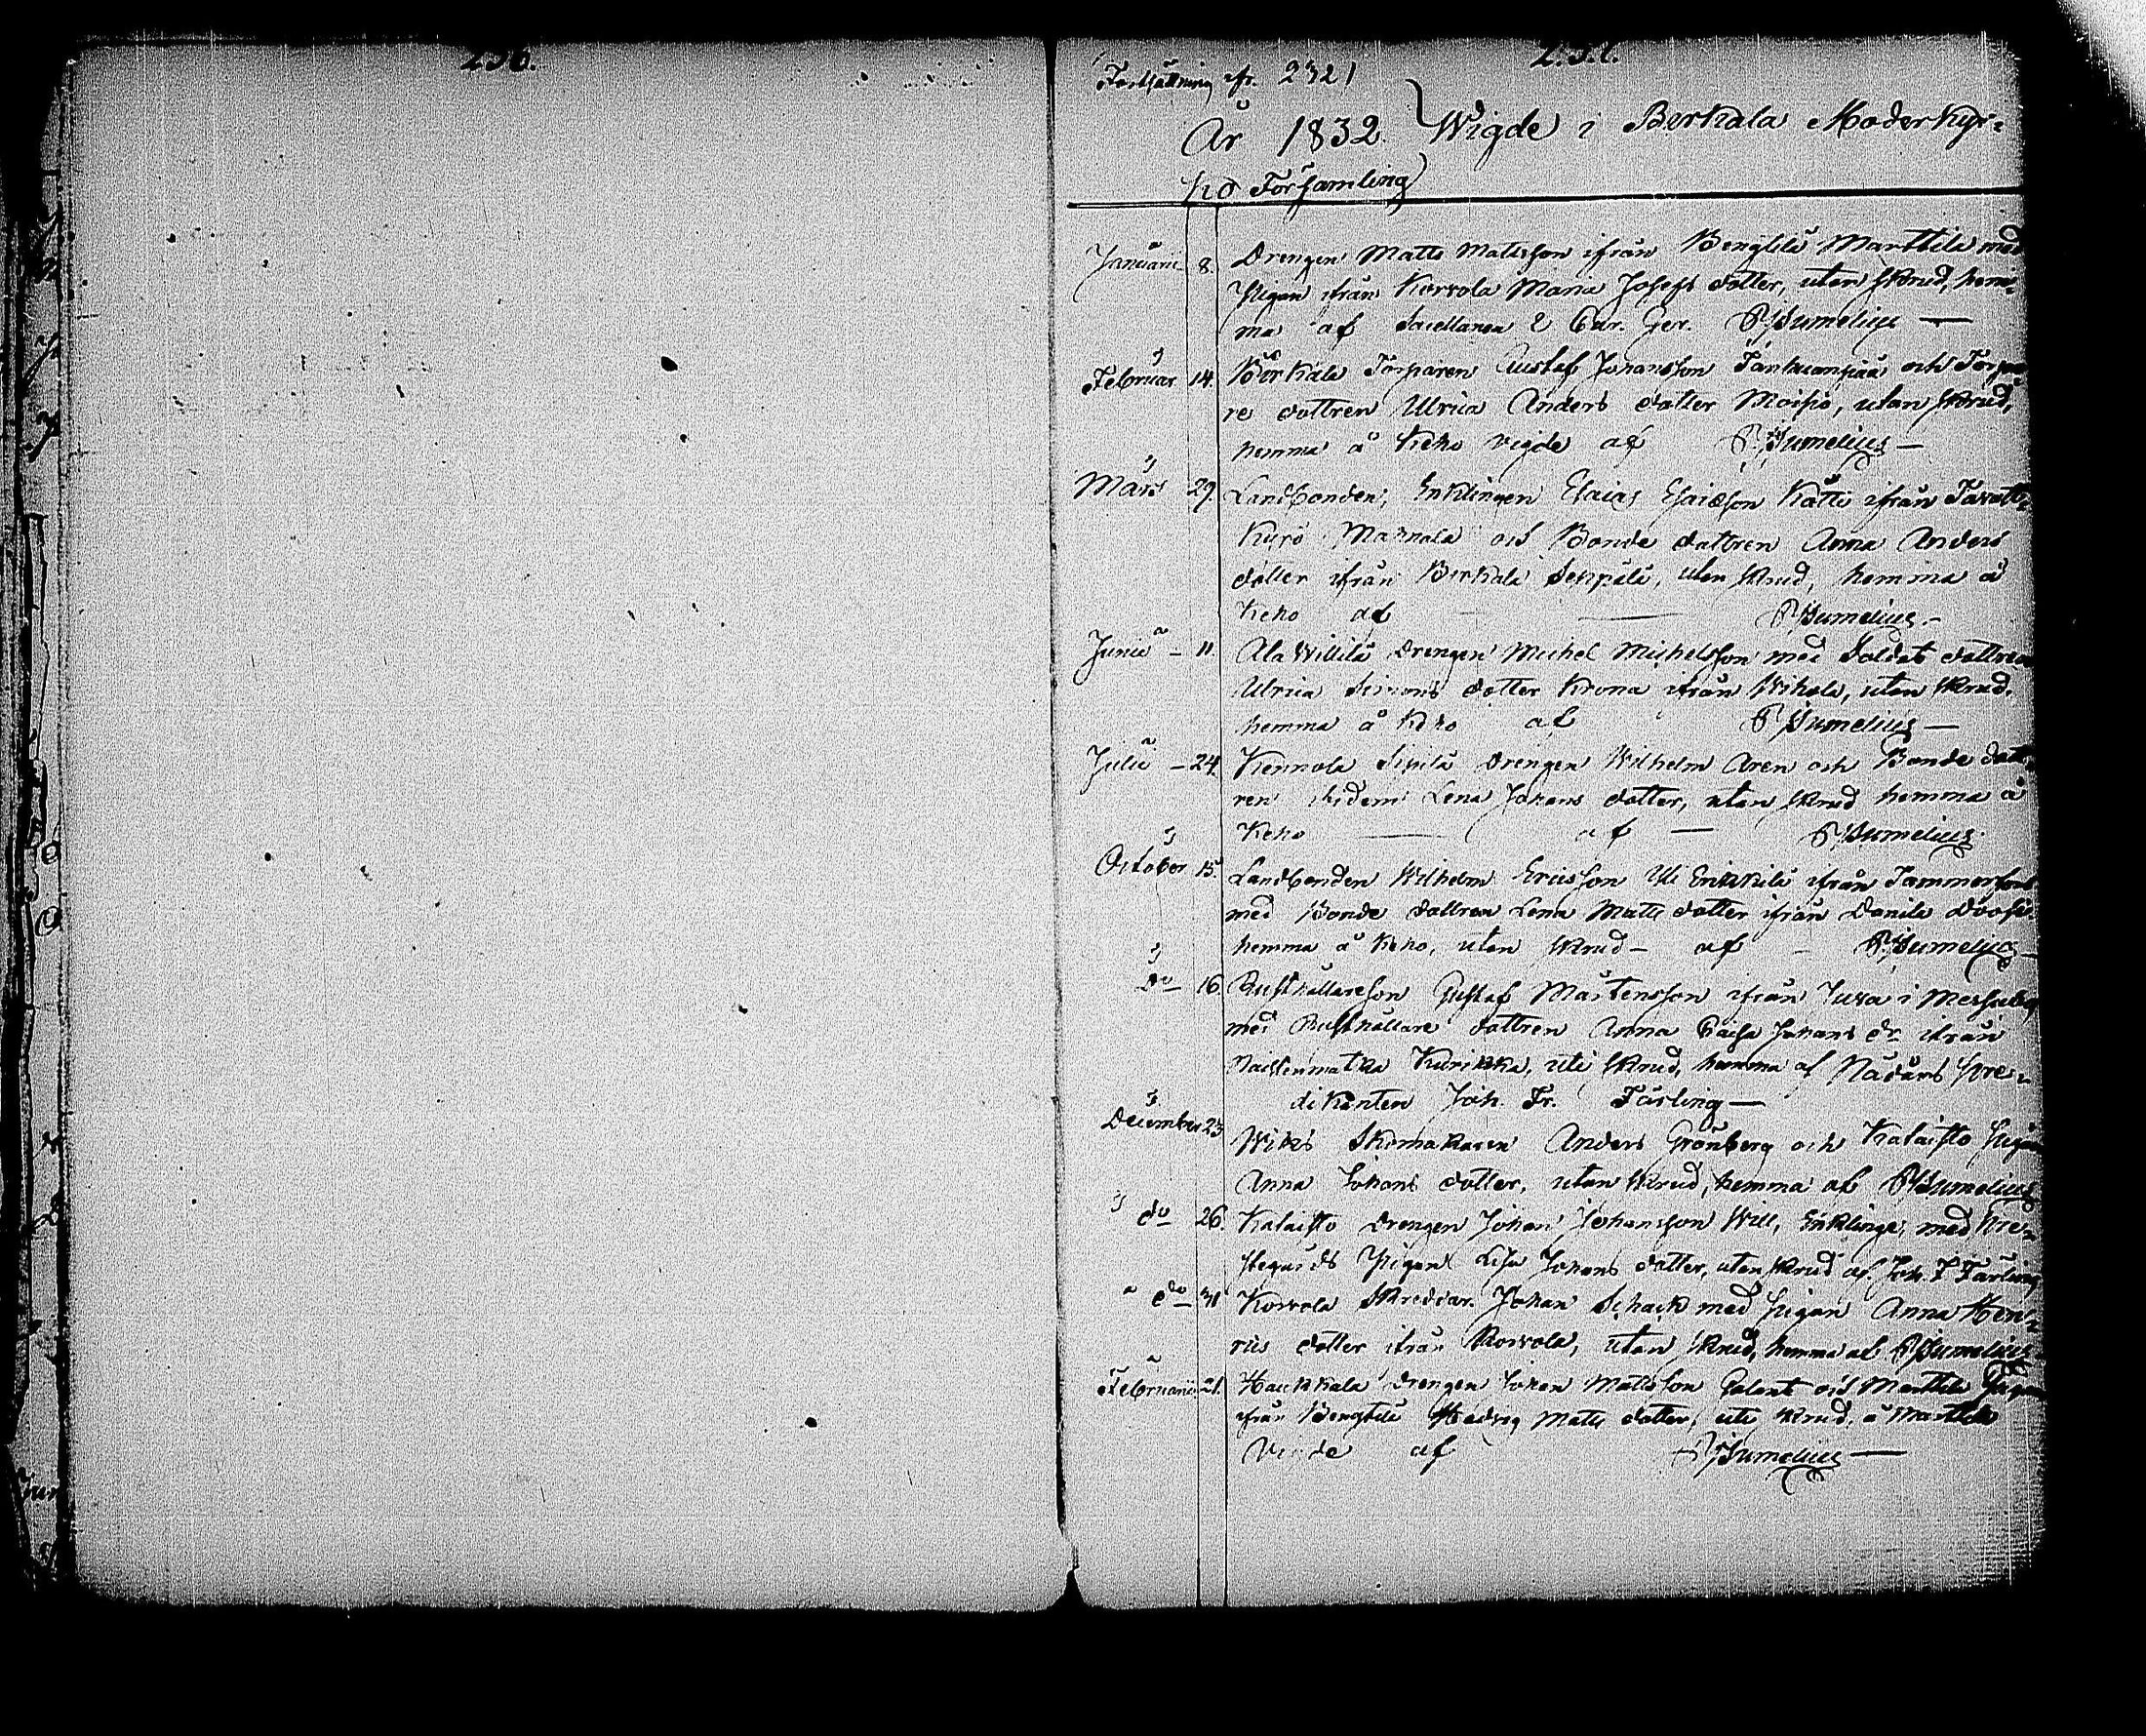 236.
237.
Fortsättning ifr. 232
År 1832. Wigde i Birkala Moderkyr-
ko Församling
Januarii 8. Drengen Matts Mattsson ifrån Bengtilä Marttila med
Pigan ifrån Korvola Maria Josefs dotter, utan skrud, hem-
ma af Sacellanen P. Sumelius —
Februar. 14. Birkala Torparen Gustaf Johansson och Torpa-
re dottren Ulrica Anders dotter Moisio, utan skrud,
hemma å Keho vigde af P. Sumelius —
Mars 29. Landbonden, Enklingen Esaias Esaiasson Kätti ifrån Tavast-
Kyrö Mannala och Bonde dottren Anna Anders
dotter ifrån Birkala Seppälä, utan skrud, hemma å
Keho af — P. Sumelius. —
Junii — 11 Ala Willilä drengen Michel Michelsson med Soldats dottren
Ulrica Simons dotter Krona ifrån Wihola, utan skrud,
hemma å Keho af P. Sumelius —
Julii — 24. Kennola Sipilä drengen Wilhelm Aren och Bonde dott-
ren ibidem Lena Johans dotter, utan skrud hemma å
Keho — af — P. Sumelius.
October 15. Landbonden Wilhelm Ericsson Yli Erikkilä ifrån Tammerfors
med Bonde dottren Lena Matts dotter ifrån
hemma å Keho, utan skrud — af — P. Sumelius —
Do 16. Rusthållareson Gustaf Mårtensson ifrån Juva i Messuby
med Rusthållare dottren Anna Caisa Johans dr ifrån
Naistenmatka Kurikka, uti skrud, hemma af Nådårs pre-
dikanten Joh. Fr. Färling —
December 23 Wiks Skomakaren Anders Grönberg och Kalaisto pigan
Anna Johans dotter, utan skrud, hemma af P. Sumelius
do 26. Kalaisto drengen Johan Johansson Will, Enklinge, med Pre-
stegårds Pigan Lisa Johans dotter, utan skrud af Joh. F. Färling
do 31 Korvola Skreddar. Johan Schack med pigan Anna Hen-
rics dotter ifrån Korvola, utan skrud, hemma af P. Sumelius
Februarii 21. Haukkala drengen Johan Mattsson Galant och Marttila Pigan
ifrån Bengtilä Hedvig Matts dotter, uti skrud, å Marttila
Vigde af P. Sumelius —